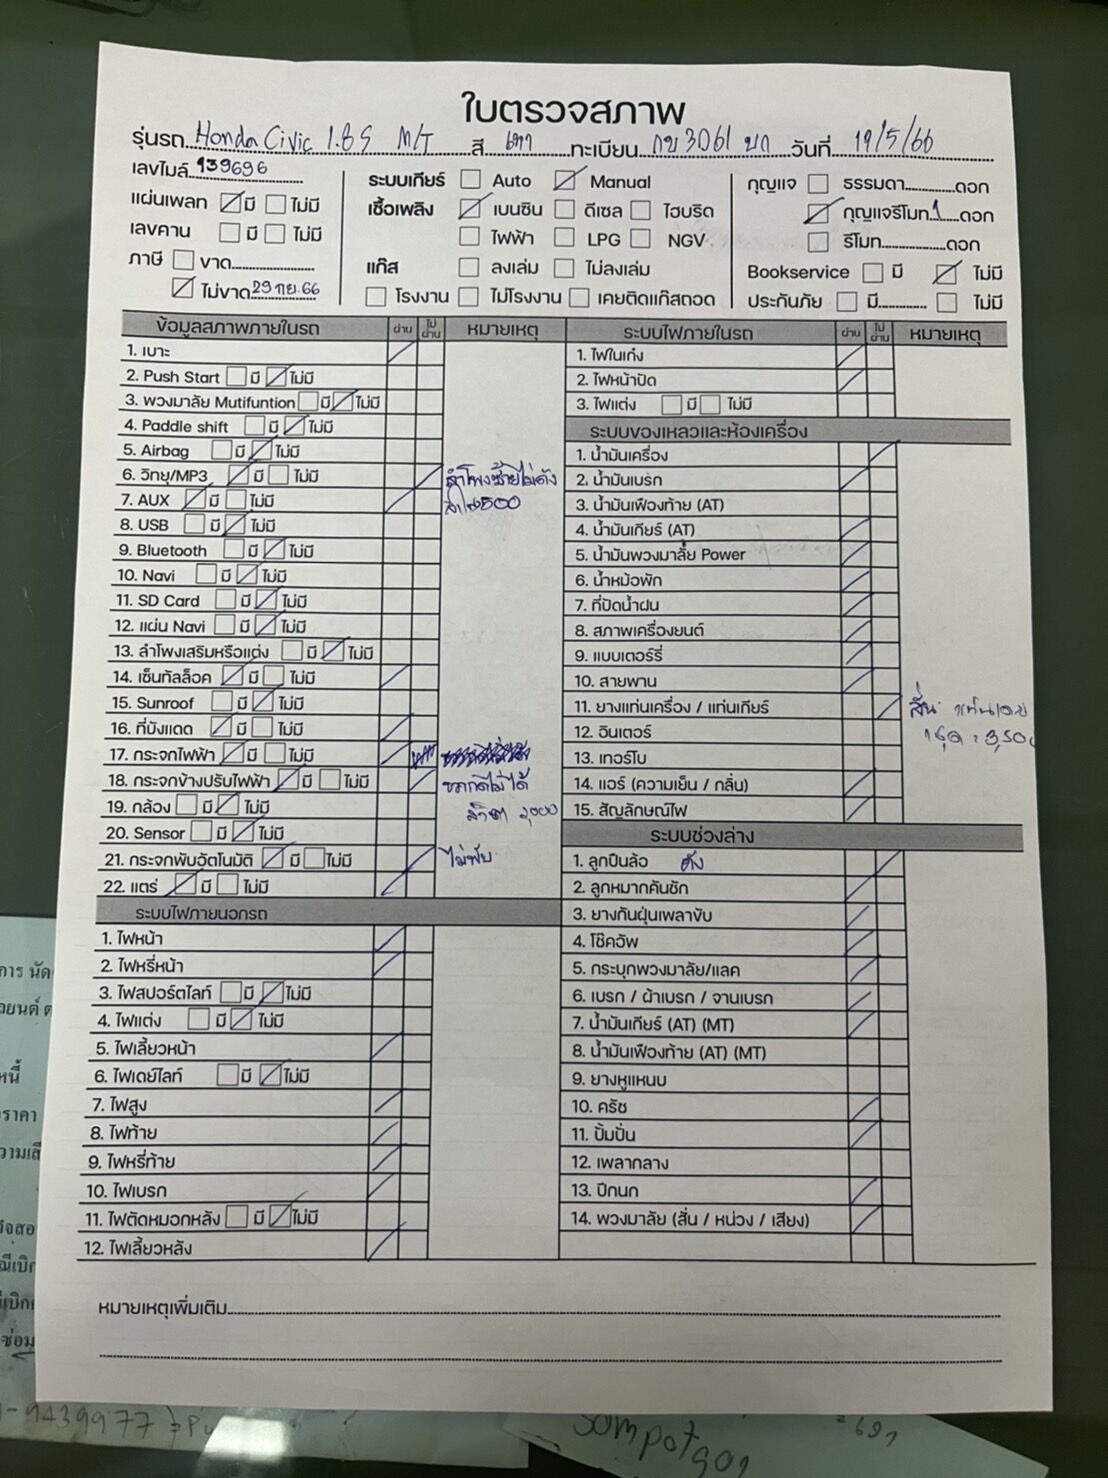 ใบตรวจสภาพ
รุ่นรถ Honda Civic 1.8S M/T สี เทา ทะเบียน กข 3061 วันที่ 19/5/66
เลขไมล์ 139696
แผ่นเพลท มี ไม่มี
เลขคาน มี ไม่มี
ภาษี ขาด
ไม่ขาด 29 กย. 66
ระบบเกียร์ Auto Manual
เชื้อเพลิง เบนซิน ดีเซล ไฮบริด
ไฟฟ้า LPG NGV
แก๊ส ลงเล่ม ไม่ลงเล่ม
โรงงาน ไม่โรงงาน เคยติดแก๊สถอด
กุญแจ ธรรมดา ดอก
กุญแจรีโมท 1 ดอก
รีโมท ดอก
Bookservice มี ไม่มี
ประกันภัย มี ไม่มี
ข้อมูลสภาพภายในรถ ผ่าน ไม่ผ่าน หมายเหตุ
1. เบาะ
2. Push Start มี ไม่มี
3. พวงมาลัย Mutifuntion มี ไม่มี
4. Paddle shift มี ไม่มี
5. Airbag มี ไม่มี
6. วิทยุ/MP3 มี ไม่มี ลำโพงซ้ายไม่ดัง
7. AUX มี ไม่มี 500
8. USB มี ไม่มี
9. Bluetooth มี ไม่มี
10. Navi มี ไม่มี
11. SD Card มี ไม่มี
12. แผ่น Navi มี ไม่มี
13. ลำโพงเสริมหรือแต่ง มี ไม่มี
14. เซ็นทัลล็อค มี ไม่มี
15. Sunroof มี ไม่มี
16. ที่บังแดด มี ไม่มี
17. กระจกไฟฟ้า มี ไม่มี
18. กระจกข้างปรับไฟฟ้า มี ไม่มี
19. กล้อง มี ไม่มี 2,000
20. Sensor มี ไม่มี
21. กระจกพับอัตโนมัติ มี ไม่มี ไม่พับ
22. แตร่ มี ไม่มี
ระบบไฟภายนอกรถ
1. ไฟหน้า
2. ไฟหรี่หน้า
3. ไฟสปอร์ตไลท์ มี ไม่มี
4. ไฟแต่ง มี ไม่มี
5. ไฟเลี้ยวหน้า
6. ไฟเดย์ไลท์ มี ไม่มี
7. ไฟสูง
8. ไฟท้าย
9. ไฟหรี่ท้าย
10. ไฟเบรก
11. ไฟตัดหมอกหลัง มี ไม่มี
12. ไฟเลี้ยวหลัง
ระบบไฟภายในรถ ผ่าน ไม่ผ่าน หมายเหตุ
1. ไฟในเก๋ง
2. ไฟหน้าปัด
3. ไฟแต่ง มี ไม่มี
ระบบของเหลวและห้องเครื่อง
1. น้ำมันเครื่อง
2. น้ำมันเบรก
3. น้ำมันเฟืองท้าย (AT)
4. น้ำมันเกียร์ (AT)
5. น้ำมันพวงมาลัย Power
6. น้ำหม้อพัก
7. ที่ปัดน้ำฝน
8. สภาพเครื่องยนต์
9. แบบเตอร์รี่
10. สายพาน
11. ยางแท่นเครื่อง / แท่นเกียร์ สั่น
12. อินเตอร์
13. เทอร์โบ
14. แอร์ (ความเย็น / กลิ่น)
15. สัญลักษณ์ไฟ
ระบบช่วงล่าง
1. ลูกปืนล้อ ดัง
2. ลูกหมากคันชัก
3. ยางกันฝุ่นเพลาขับ
4. โช๊คอัพ
5. กระบุกพวงมาลัย/แลค
6. เบรก / ผ้าเบรก / จานเบรก
7. น้ำมันเกียร์ (AT) (MT)
8. น้ำมันเฟืองท้าย (AT) (MT)
9. ยางหูแหนบ
10. ครัช
11. ปั้มปั่น
12. เพลากลาง
13. ปีกนก
14. พวงมาลัย (สั่น / หน่วง / เสียง)
หมายเหตุเพิ่มเติม
9439977